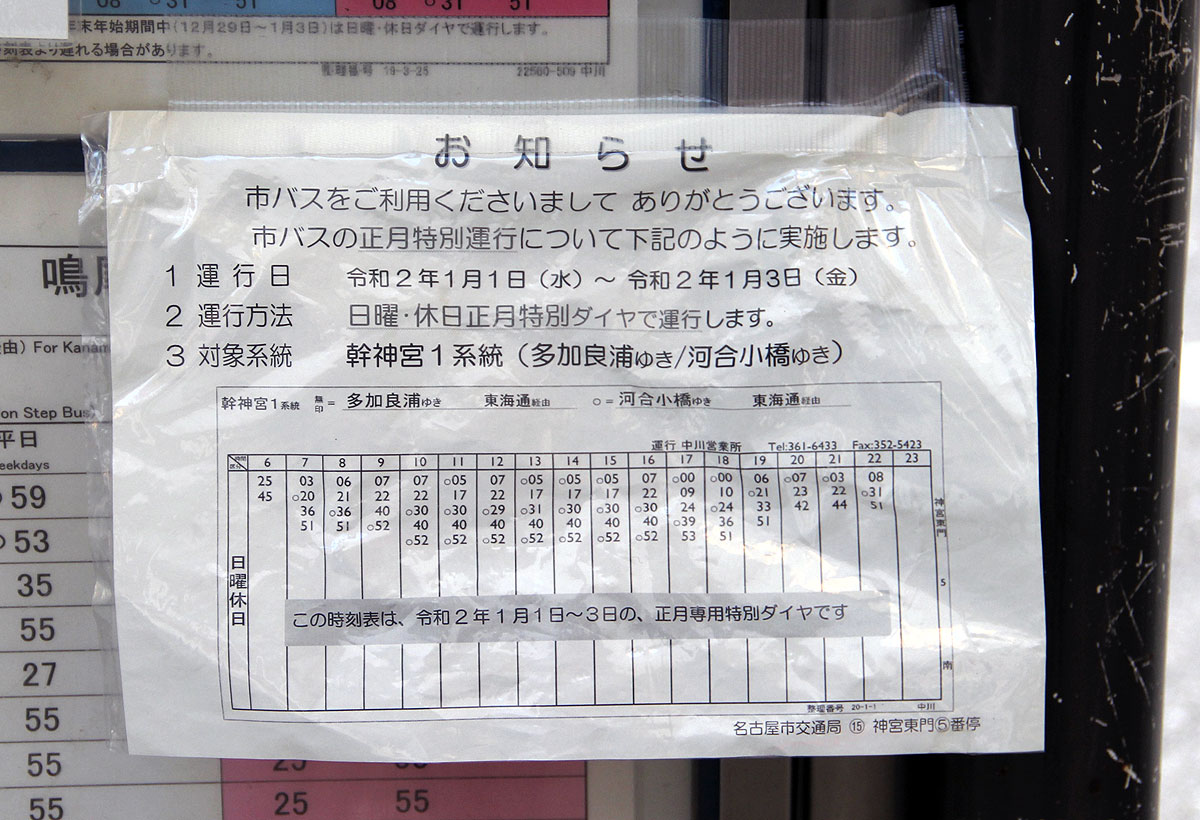 08 ○31 51 08 ○31 51
年末年始期間中(12月29日〜1月3日)は日曜・休日ダイヤで運行します。
時刻表より遅れる場合があります。
整理番号 19-3-25 22560-509 中川
お知らせ
市バスをご利用くださいまして ありがとうございます。
市バスの正月特別運行について下記のように実施します。
1 運行日 令和2年1月1日（水）～ 令和2年1月3日（金）
2 運行方法 日曜・休日正月特別ダイヤで運行します。
3 対象系統 幹神宮1系統（多加良浦ゆき/河合小橋ゆき）
幹神宮1系統 無印= 多加良浦ゆき 東海通経由 ○=河合小橋ゆき 東海通経由
運行 中川営業所 Tel:361-6433 Fax:352-5423
時間 区分 6 7 8 9 10 11 12 13 14 15 16 17 18 19 20 21 22 23
25 03 06 07 07 ○05 07 ○05 ○05 ○05 07 ○00 ○00 06 ○07 ○03 08
45 ○20 21 22 22 17 22 17 17 17 22 09 10 ○21 23 22 ○31
36 ○36 40 ○30 ○30 ○29 ○31 ○30 ○30 ○30 24 ○24 33 42 44 51
51 51 ○52 40 40 40 40 40 40 40 ○39 36 51
○52 ○52 ○52 ○52 ○52 ○52 ○52 53 51
日曜休日
神宮東門 5 南
この時刻表は、令和2年1月1日～3日の、正月専用特別ダイヤです
整理番号 20-1-1 中川
名古屋市交通局 ⑮ 神宮東門⑤番停
鳴
由）For Kanam
on Step Bus
平日
eekdays
○59
○53
35
55
27
55
55
55
25 55